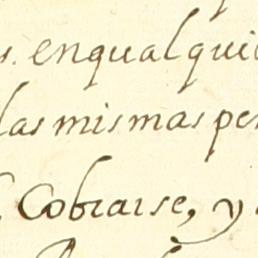 s. enqualqui
las mismas pe
Cobrarse, y